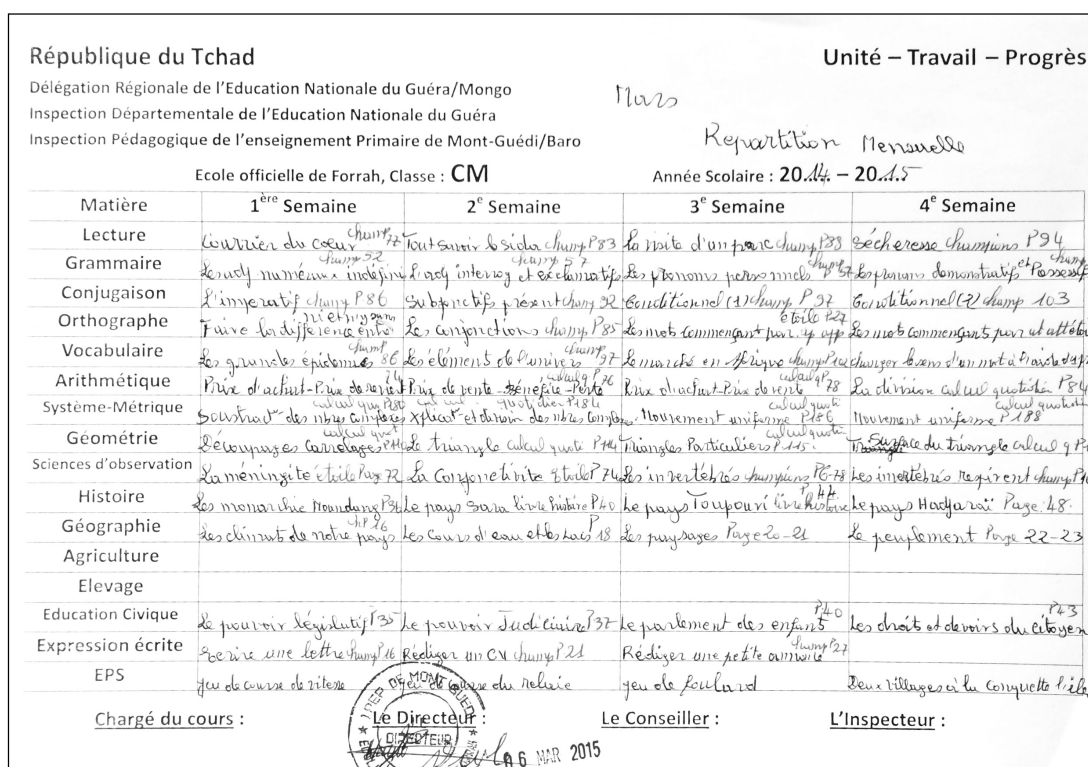 République du Tchad Unité – Travail – Progrès
Délégation Régionale de l'Education Nationale du Guéra/Mongo
Mars
Inspection Départementale de l'Education Nationale du Guéra
Inspection Pédagogique de l'enseignement Primaire de Mont-Guédi/Baro
Repartition Mensuelle
Ecole officielle de Forrah, Classe : CM Année Scolaire : 2014 – 2015
Matière 1ère Semaine 2e Semaine 3e Semaine 4e Semaine
Lecture Courrier du coeur champ 77 Tout savoir le sida champ P83 La visite d'un parc champ P89 Sécheresse champions P94
Grammaire Les adj numéraux indéfini champ 52 L'adj interrog et exclamatifs champ 57 Les pronoms personnels champ Les pronoms demonstratifs et Possessif champ
Conjugaison L'imperatif champ P86 Subjonctif présent champ 92 Conditionnel (1) champ P 97 Conditionnel (2) champ 103
Orthographe Faire la différence entre ni et n'y Les conjonctions champ P85 Les mots commençant par étoile P27 Les mots commençant par
Vocabulaire Les grandes épidémies champ 86 Les éléments de l'univers champ 97 Le marché en Afrique champ changer le sens d'un mot à
Arithmétique Prix d'achat-Prix de revient Prix de vente - Bénéfice - Perte calcul q P76 Prix d'achat-Prix de vente calcul q P78 La division calcul quotidien P84
Système-Métrique Soustract° des nbres complexes calcul quo P80 calcul quotidien P184 Mouvement uniforme P186 calcul quoti Mouvement uniforme P188 calcul quotidien
Géométrie Découpages Carrelages calcul quot Le triangle calcul quoti P114 Triangles Particuliers P115 calcul quoti Surface du triangle calcul q
Sciences d'observation La méningite étoile Page 72 La Conjonctivite étoile P74 Les invertébrés champions Les invertébrés respirent champ
Histoire Les monarchie Moundang P36 Le pays Sara livre histoire P40 Le pays Toupouri livre histoire P44 Le pays Hadjaraï Page 48
Géographie Les climats de notre pays P16 Les Cours d'eau et les Lacs P18 Les paysages Page 20-21 Le peuplement Page 22-23
Agriculture
Elevage
Education Civique Le pouvoir législatif P35 Le pouvoir Judiciaire P37 Le parlement des enfants P40 Les droits et devoirs du citoyen P43
Expression écrite Ecrire une lettre champ P16 Rédiger un CV champ P21 Rédiger une petite annonce champ P27
EPS Jeu de course de vitesse Jeu de Course du relaie Jeu de foulard Deux villages à la conquette
Chargé du cours : Le Directeur : Le Conseiller : L'Inspecteur :
DE MONT GUEDI
DIRECTEUR
06 MAR 2015